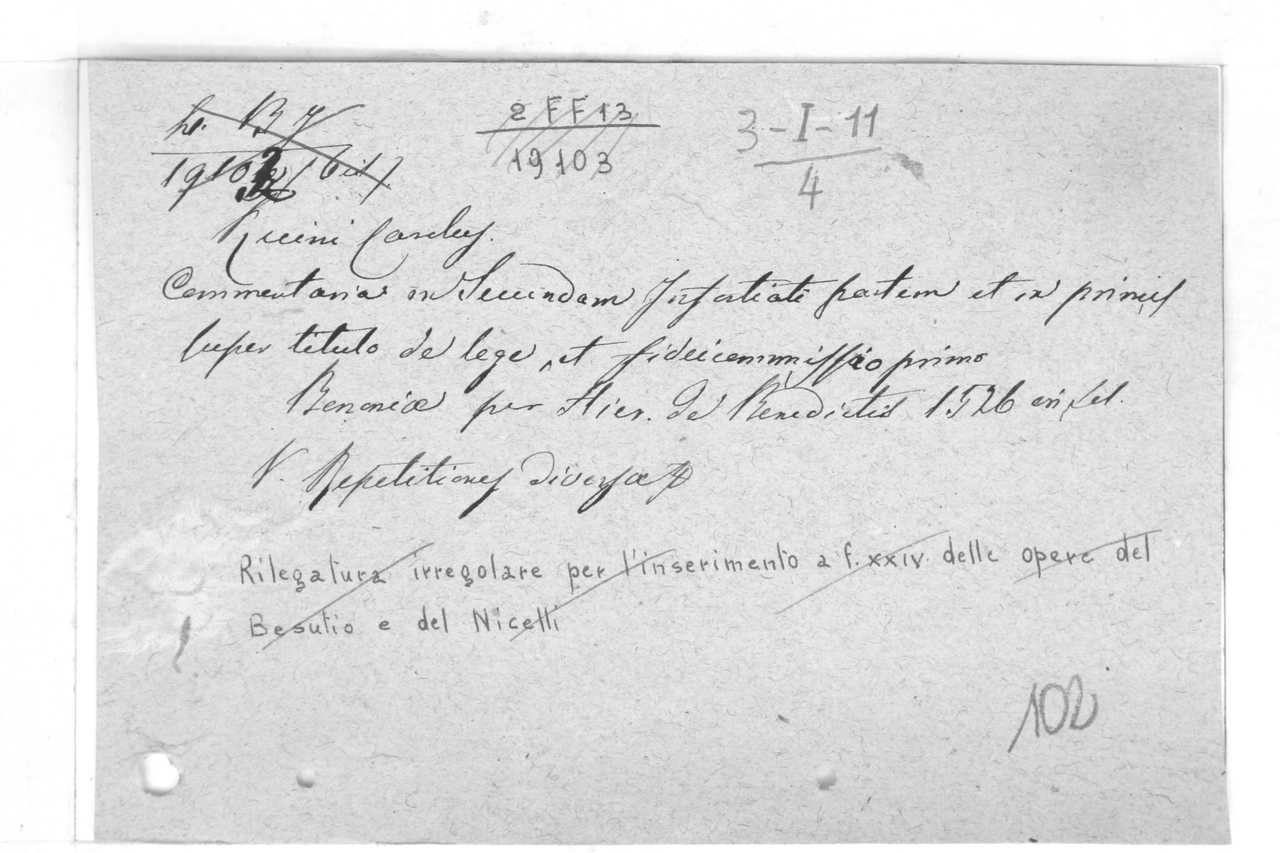 2 FF 13
19103
3-I-11
4
Ruini Carolus.
Commentaria in Secundam Infortiati partem et in primis
super titulo de lege, et fideicommissio primo
Bononiæ per Hier. de Benedictis 1526 in fol.
V. Repetitiones diversæ
Rilegatura irregolare per l'inserimento a f. xxiv. delle opere del
Besutio e del Nicelli
102